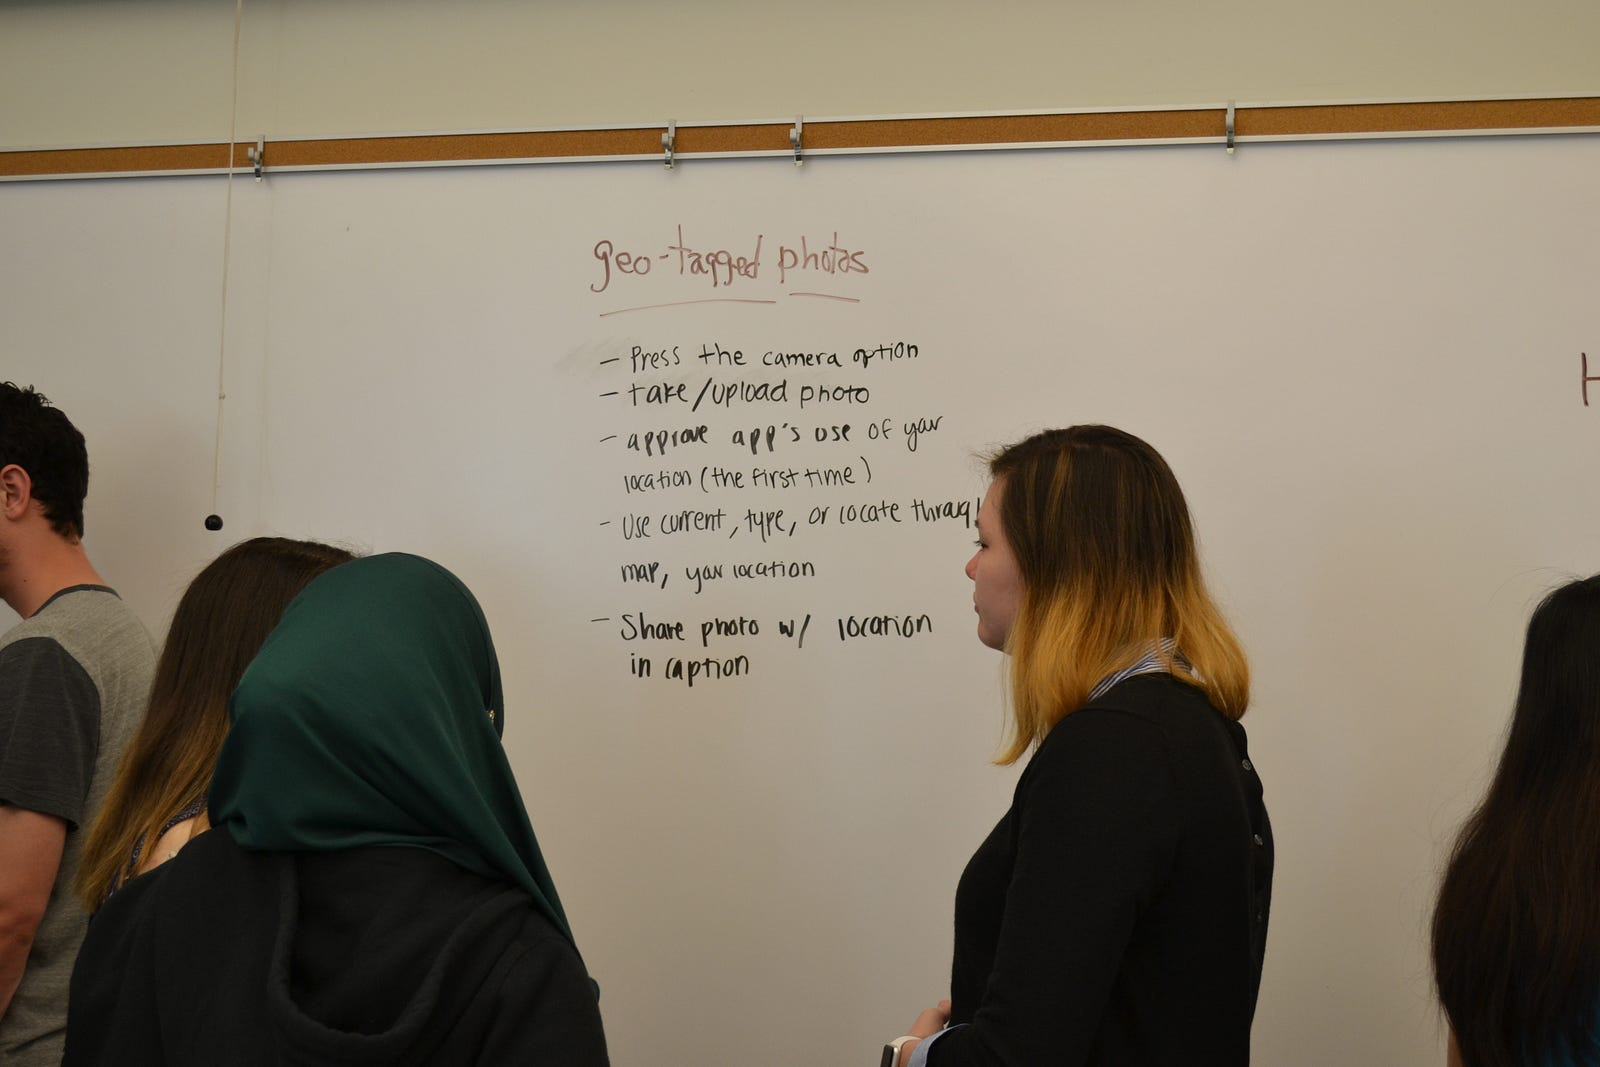 geo-tagged photos
- Press the camera option
- take/upload photo
- approve app's use of your
location (the first time)
- Use current, type, or locate through
map, your location
- Share photo w/ location
in caption
H